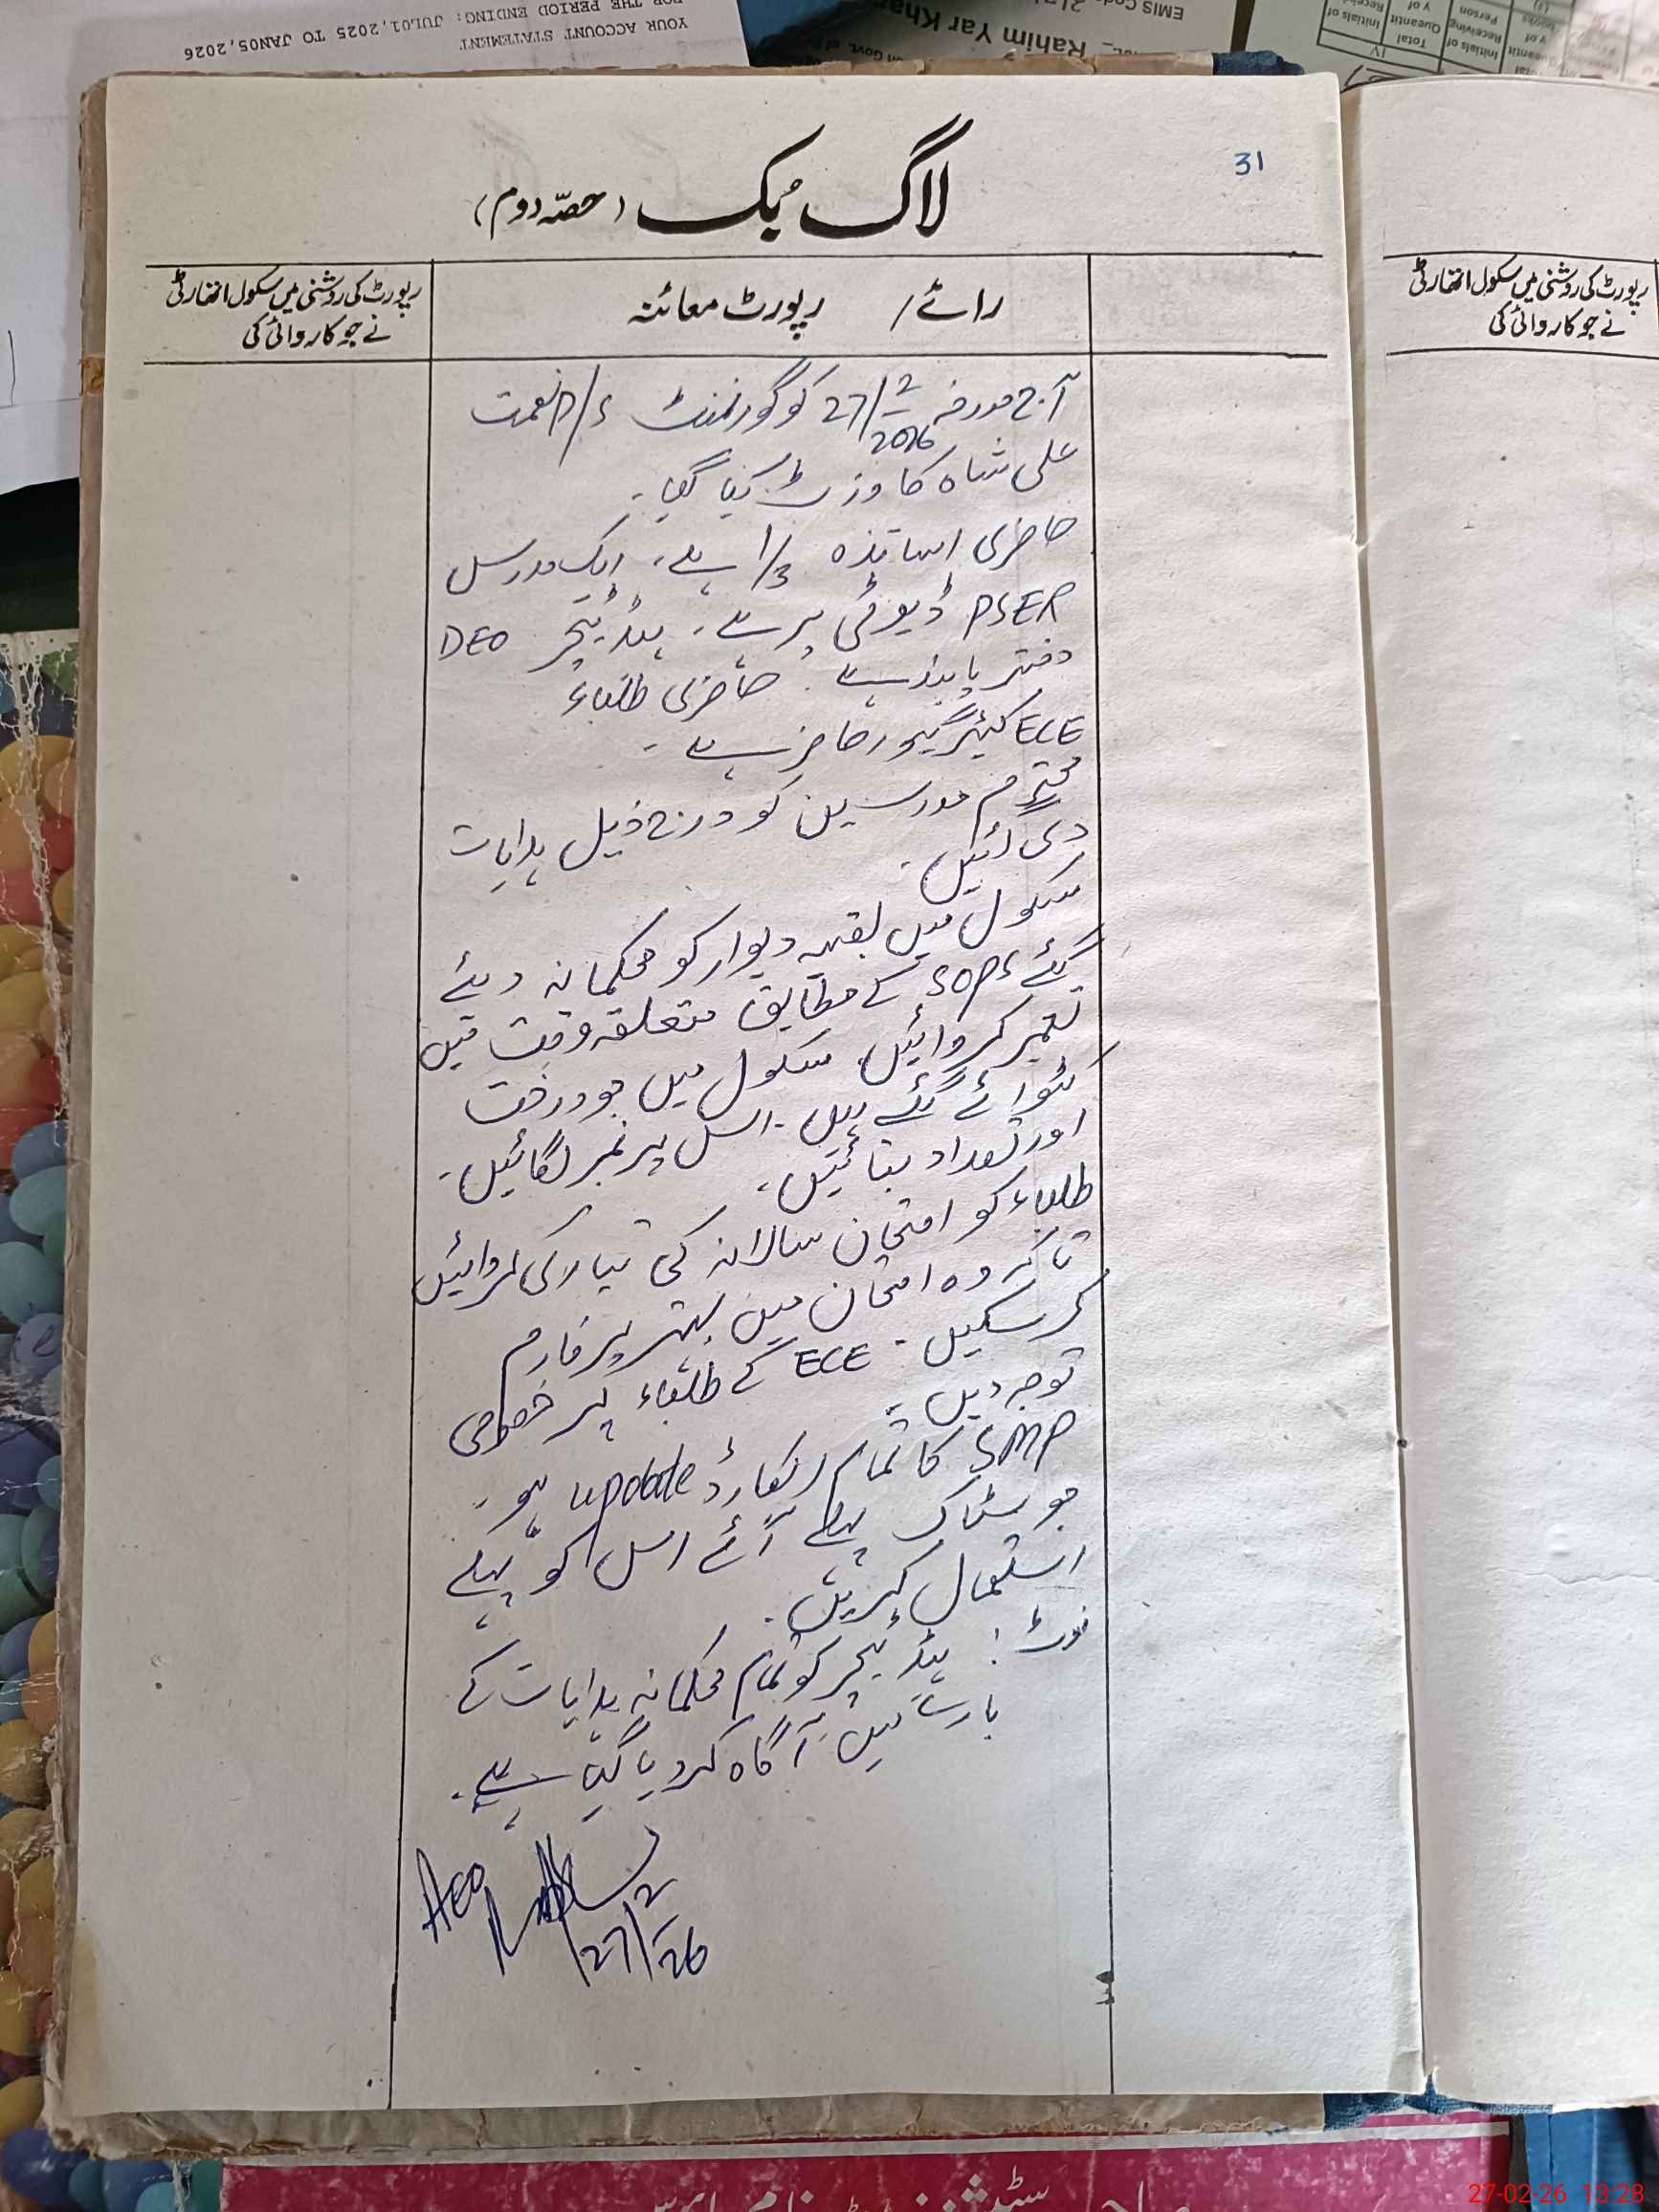 YOUR ACCOUNT STATEMENT
FOR THE PERIOD ENDING: JUL01,2025 TO JAN05,2026
EMIS Code
Rahim Yar Khan
31
لاگ بُک (حصّہ دوم)
رائے/ رپورٹ معائنہ
رپورٹ کی روشنی میں سکول اتھارٹی
نے جو کاروائی کی
آج مورخہ 27/2/2026 کو گورنمنٹ P/S نعمت
علی شاہ کا وزٹ کیا گیا۔
حاضری اساتذہ 1/3 ہے، ایک مدرس
PSER ڈیوٹی پر ہے۔ ہیڈ ٹیچر DEO
دفتر پابند ہے۔ حاضری طلباء
ECE کیئر گیور حاضر ہے۔
محترم مدرسین کو درج ذیل ہدایات
دی گئیں۔
سکول میں بقیہ دیوار کو محکمانہ دیئے
گئے SOPs کے مطابق متعلقہ وقت میں
تعمیر کروائیں۔ سکول میں جو درخت
کٹوائے گئے ہیں۔ اس پر نمبر لگائیں۔
اور تعداد بتائیں۔
طلباء کو امتحان سالانہ کی تیاری کروائیں
تاکہ وہ امتحان میں بہتر پرفارم
کر سکیں۔ ECE کے طلباء پر خصوصی
توجہ دیں۔
SMP کا تمام ریکارڈ update ہو۔
جو سٹاک پہلے آئے اس کو پہلے
استعمال کریں۔
نوٹ: ہیڈ ٹیچر کو تمام محکمانہ ہدایات کے
بارے میں آگاہ کر دیا گیا ہے۔
AEO
27/2/26
رپورٹ کی روشنی میں سکول اتھارٹی
نے جو کاروائی کی
27-02-26 13:28